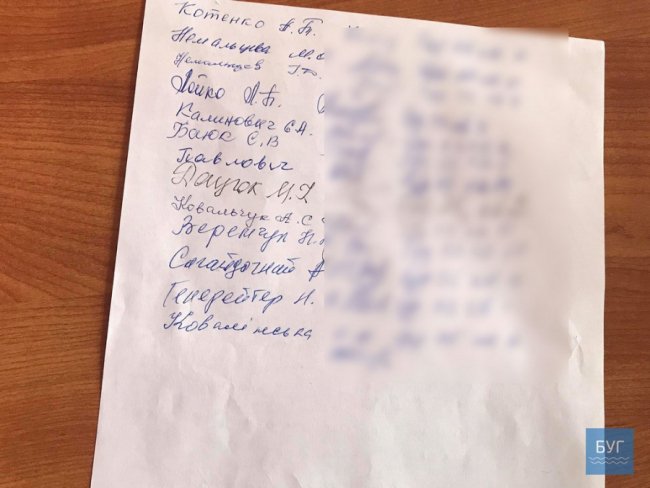 Котенко А.Б.
Немальцева М.
Немальцев
Лойко Л.Б.
Калинович Є.А.
Баюк С.В
Павлович
Дацюк М.
Ковальчук А.С
Веремчук Н.
Сагайдачний А
Генерейтер Н.
Ковалінська
БУГ